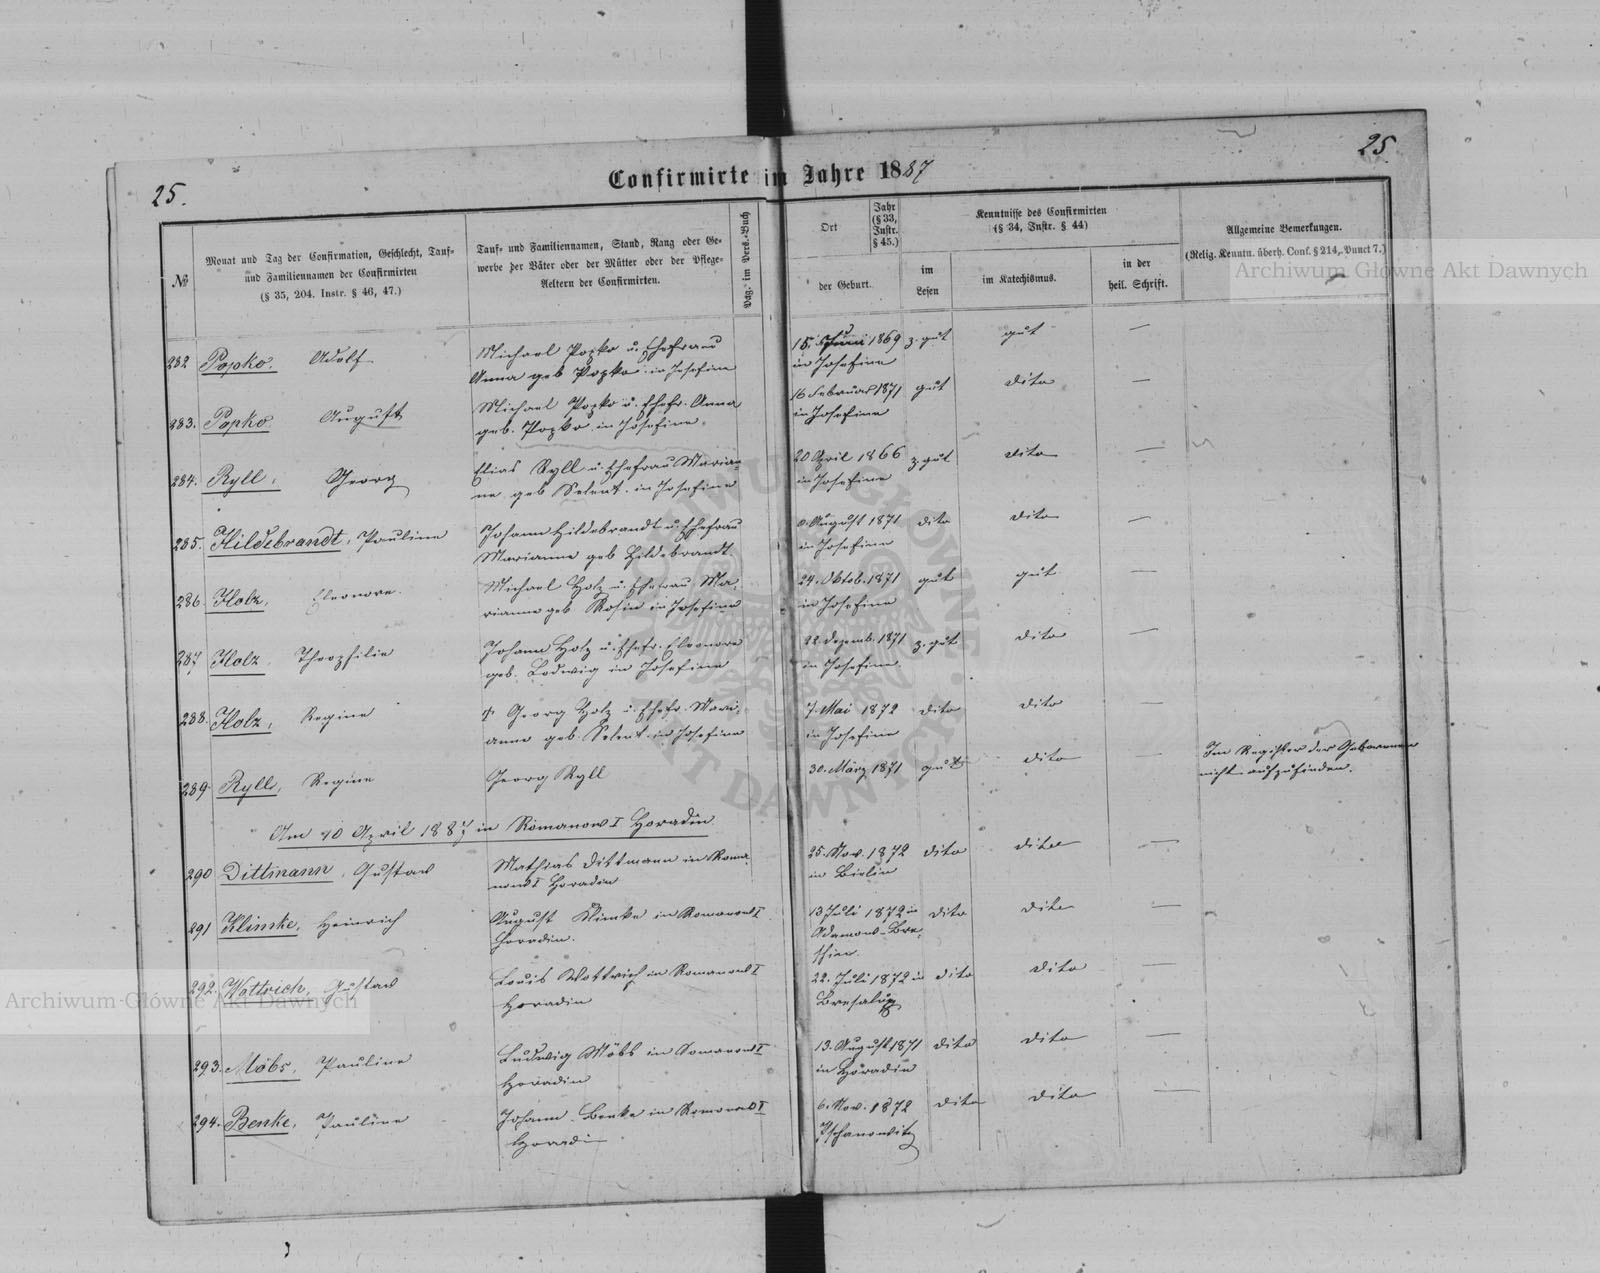 25.
25
Confirmirte im Jahre 1887
№
Monat und Tag der Confirmation, Geschlecht, Tauf-
und Familiennamen der Confirmirten
(§ 35, 204. Instr. § 46, 47.)
Tauf- und Familiennamen, Stand, Rang oder Ge-
werbe der Väter oder der Mütter oder der Pflege-
Aeltern der Confirmirten.
Pag. im Pers.-Buch
Ort
Jahr
(§ 33,
Instr.
§ 45.)
der Geburt.
Kenntnisse des Confirmirten
(§ 34, Instr. § 44)
im
Lesen
im Katechismus.
in der
heil. Schrift.
Allgemeine Bemerkungen.
(Relig. Kenntn. überh. Conf. § 214, Punct 7.)
Archiwum Główne Akt Dawnych
282 Popko. Adolf Michael Popko u. Ehefrau 15. Juni 1869 z. gut gut —
Anna geb Popko in Josefine in Josefine
283. Popko August Michael Popko u. Ehefr. Anna 16 Februar 1871 gut dito —
geb. Popko in Josefine. in Josefine
284. Ryll, Georg Elias Ryll u. Ehefrau Marian- 20 April 1866 z. gut dito —
ne geb Selent in Josefine in Josefine
285. Hildebrandt, Pauline Johann Hildebrandt u. Ehefrau August 1871 dito dito —
Marianne geb Hildebrandt in Josefine
286 Holz, Eleonore. Michael Holz u. Ehefrau Ma- 24. Oktob. 1871 gut gut —
rianne geb Rosin in Josefine in Josefine
287 Holz, Theophilie Johann Holz u. Ehefr. Eleonore 22 Dezemb. 1871 z. gut dito —
geb. Ludwig in Josefine in Josefine.
288. Holz, Regine † Georg Holz u. Ehefr. Mari- 7. Mai 1872 dito dito —
anne geb. Selent in Josefine in Josefine
289 Ryll, Regine Georg Ryll 30. März 1871 gut dito — Im Register der Geborenen
nicht aufzufinden.
Am 10 April 1887 in Romanow I Horadin
290 Dittmann, Gustav Mathias Dittmann in Roma- 25. Nov. 1872 dito dito —
now I Horadin in
291 Klimke, Heinrich August Klimke in Romanow I 13 Juli 1872 in dito dito —
Horadin. Adamow-
292. Wottrich, Gustav Louis Wottrich in Romanow I 22. Juli 1872 in dito dito —
Horadin
Archiwum Główne Akt Dawnych
293. Möbs, Pauline Ludwig Möbs in Romanow I 13. August 1871 dito dito —
Horadin in Horadin
294. Benke, Pauline Johann Benke in Romanow I 6. Nov. 1872 dito dito —
Horadin
ARCHIWUM GŁÓWNE AKT DAWNYCH